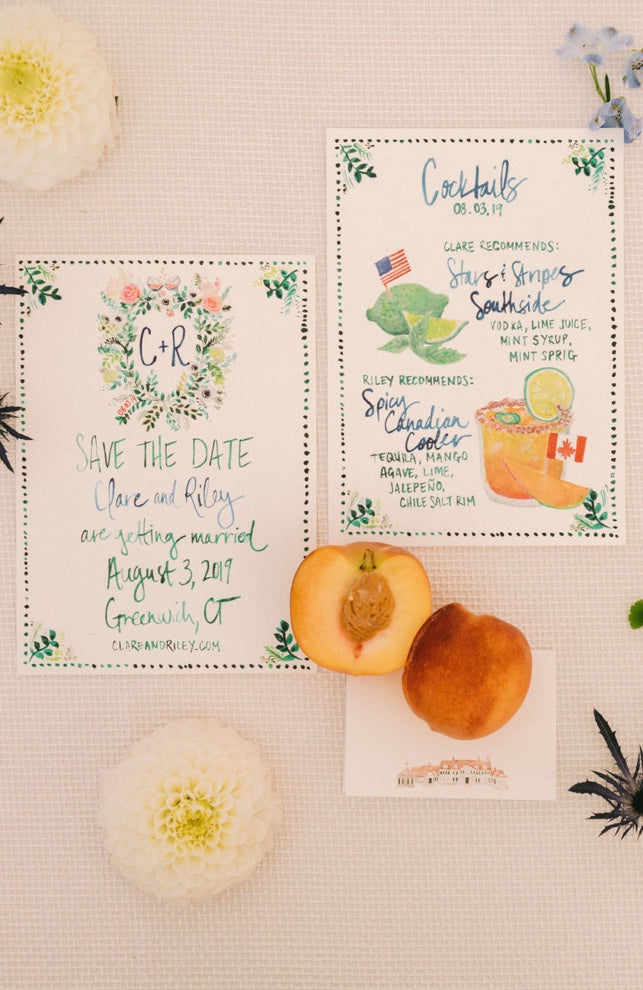 C+R
SAVE THE DATE
Clare and Riley
are getting married
August 3, 2019
Greenwich, CT
CLAREANDRILEY.COM
Cocktails
08.03.19
CLARE RECOMMENDS:
Stars & Stripes
Southside
VODKA, LIME JUICE,
MINT SYRUP,
MINT SPRIG
RILEY RECOMMENDS:
Spicy
Canadian
Cooler
TEQUILA, MANGO
AGAVE, LIME,
JALEPEÑO,
CHILE SALT RIM